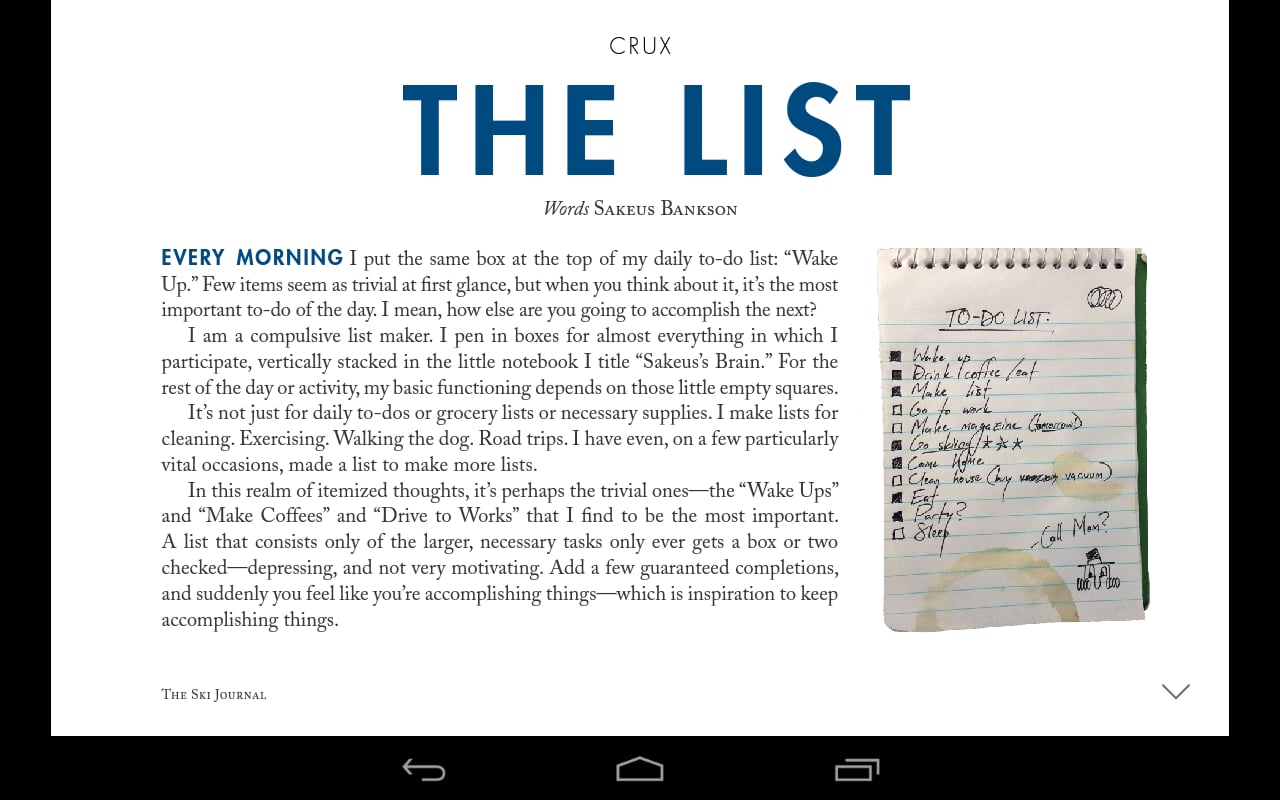 CRUX
THE LIST
Words Sakeus Bankson
EVERY MORNING I put the same box at the top of my daily to-do list: “Wake
Up.” Few items seem as trivial at first glance, but when you think about it, it’s the most
important to-do of the day. I mean, how else are you going to accomplish the next?
I am a compulsive list maker. I pen in boxes for almost everything in which I
participate, vertically stacked in the little notebook I title “Sakeus’s Brain.” For the
rest of the day or activity, my basic functioning depends on those little empty squares.
It’s not just for daily to-dos or grocery lists or necessary supplies. I make lists for
cleaning. Exercising. Walking the dog. Road trips. I have even, on a few particularly
vital occasions, made a list to make more lists.
In this realm of itemized thoughts, it’s perhaps the trivial ones—the “Wake Ups”
and “Make Coffees” and “Drive to Works” that I find to be the most important.
A list that consists only of the larger, necessary tasks only ever gets a box or two
checked—depressing, and not very motivating. Add a few guaranteed completions,
and suddenly you feel like you’re accomplishing things—which is inspiration to keep
accomplishing things.
TO-DO LIST:
Wake up
Drink coffee/eat
Make list
Go to work
Make magazine (tomorrow)
Go skiing!
Come Home
Clean house (buy vacuum)
Eat
Party?
Sleep
Call Mom?
The Ski Journal